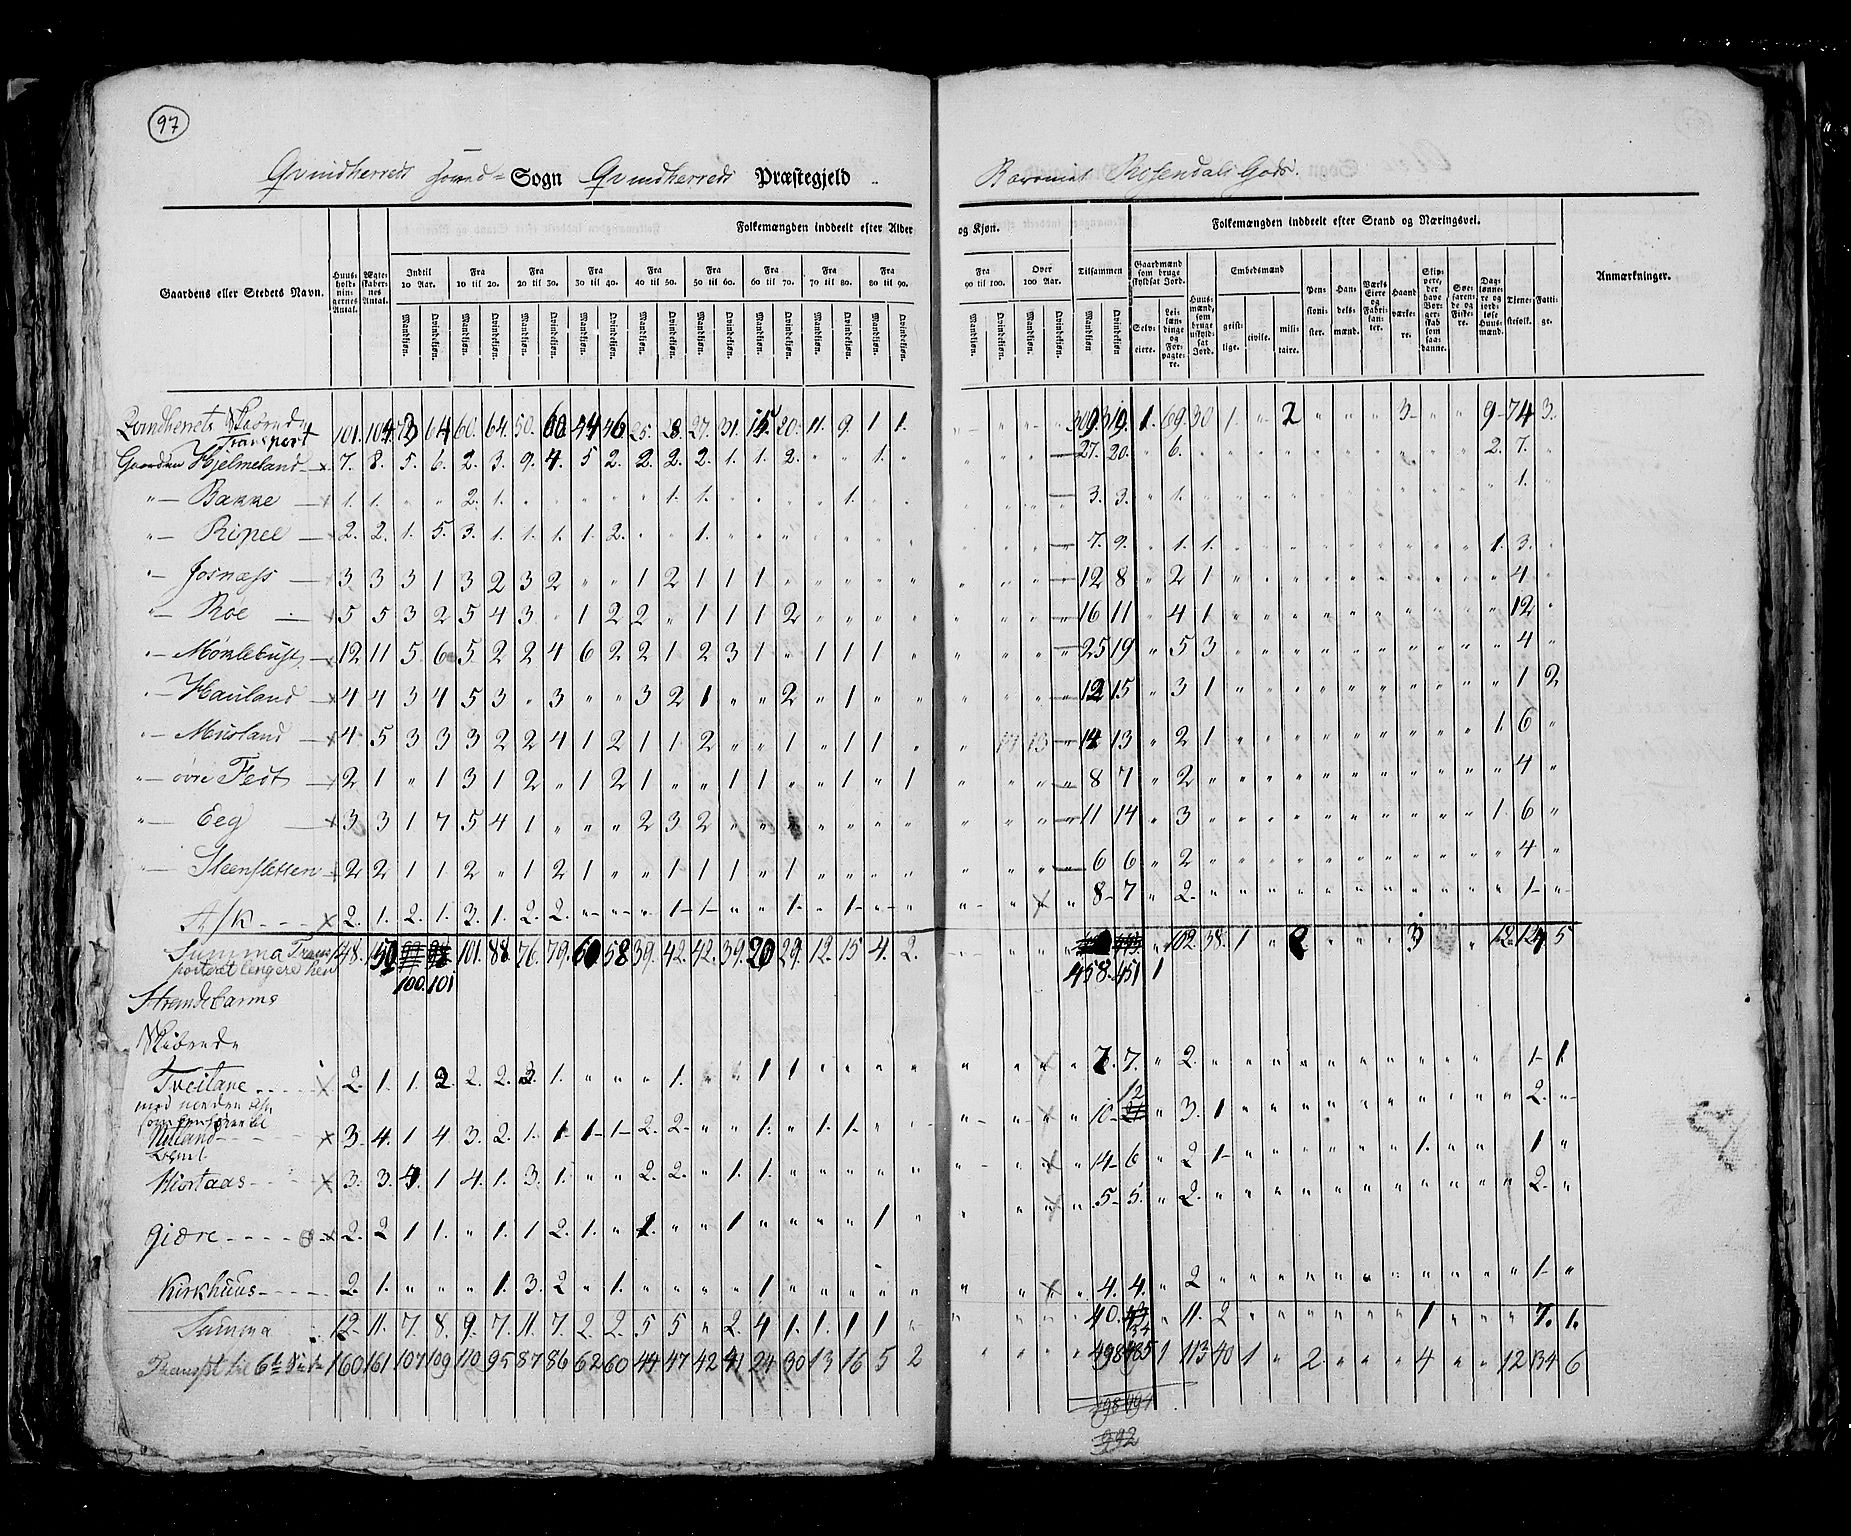 97
Qvindherreds Sogn Qvindherreds Præstegjeld
Baroniet Rosendals Gods.
Folkemængden inddeelt efter Alder og Kjøn.
Folkemængden inddeelt efter Stand og Næringsvei.
Gaardens eller Stedets Navn.
Huusholdningernes Antal.
Ægteskabernes Antal.
Indtil 10 Aar. Fra 10 til 20. Fra 20 til 30. Fra 30 til 40. Fra 40 til 50. Fra 50 til 60. Fra 60 til 70. Fra 70 til 80. Fra 80 til 90. Fra 90 til 100. Over 100 Aar. Tilsammen
Mandkjøn. Qvindekjøn. Mandkjøn. Qvindekjøn. Mandkjøn. Qvindekjøn. Mandkjøn. Qvindekjøn. Mandkjøn. Qvindekjøn. Mandkjøn. Qvindekjøn. Mandkjøn. Qvindekjøn. Mandkjøn. Qvindekjøn. Mandkjøn. Qvindekjøn. Mandkjøn. Qvindekjøn. Mandkjøn. Qvindekjøn. Mandkjøn Qvindekjøn
Gaardmænd som bruge skyldsat Jord.
Selveiere.
Leilændinge og Forpagtere.
Huusmænd, som bruge uskyldsat Jord.
Embedsmænd
geistlige. civile. militaire.
Pensionister.
Handelsmænd.
Værks Eiere og Fabrikanter.
Haandværkere.
Skippere, der have Borgerskab som saadanne.
Søefarende og Fiskere.
Daglønnere og jordløse Huusmænd.
Tjenestefolk.
Fattige.
Anmærkninger.
Qvindherrets Skibrede
Transport 101. 104. 73 64 60. 64. 50. 60. 44 46 25. 28. 27. 31. 15. 20. 11. 9. 1 1. 309. 319. 1. 69. 30 1. " 2 " " " 3 " " 9 74 3
Gaarden Hjelmeland 7. 8. 5. 6. 2. 3. 9. 4. 5 2. 2. 2. 2. 1. 1. 2. " " 1. " 27. 20. " 6. 2. 7.
" Bakke 1. 1. " " 2. 1. " " " " " 1. 1. " " " " 1. " " 3. 3. " 1. 1.
" Ripel 2. 2. 1. 5. 3. 1. 1. 1. 1. 2. " " 1. 7. 9. " 1. 1. 1. 3.
" Josnæss 3 3 3 1 3 2 3 2 " " 1 2 1 1 1 12 8 " 2 1 4
" Roe 5 5 3 2 5 4 3 " 1 2 2 " 1 1 1 2 16 11 " 4 1 12
" Mønlebust 12 11 5 6 5 2 2 4 6 2 2 1 2 3 1 " 1 1 1 " 25 19 " 5 3 4
" Hauland 4 4 3 4 5 3 " 3 " " 3 2 1 " " 2 " 1 " " 12 15 " 3 1 1 2
" Musland 4 5 3 3 3 2 2 4 1 2 1 1 2 " " 1 " 1 1 " 14 13 " 2 1 1 6
" øvre Feet 2 1 " 1 3 1 2 " 1 2 1 " " 1 1 " " 1 " 1 8 7 " 2 4
" Eeg 3 3 1 7 5 4 1 " " " 2 3 2 11 14 " 3 1 6
" Steensletten 2 2 1 1 2 " 1 2 1 " " 1 1 1 " 1 6 6 " 2 4
Ask 2. 1. 2. 1. 3. 1. 2. 2. " " " 1 1 " " 1 " 1 " " 8 7 " 2. 1
Summa Trans 148. 150 101. 88. 76. 79. 60 58 39. 42. 42. 39. 20 29. 12. 15 4. 2. 102. 38. 1 " 2 3 12. 124 5
porteret lengere hen 100. 101 458. 451 1
Strandebarms
Skibrede
Tveitane 2. 1. 1. 2. 2. 2. 3. 1. " " " 1. " " 1 1 7. 7. " 2. 1 1
12
Nuland 3. 4. 1 4 3. 2. 1. 1 1 1 2. 2. " " 1. " 1. 1. 10 " 3. 1 2.
Hiortaas 3. 3. 4. 1 4. 1. 3. 1. " " 2. 2. " 1. 1. 14 6 " 2 1 1. 1
Giære 2. 2 1 1. " 1. 1 2. 1. " 1. " " 1 " " " " 1 " 5 5. " 2. 2.
Kirkhuus 2. 1. " " " 1. 3. 2 " 1. " " " " 1 4. 4. " 2 1
Summa 12. 11. 7. 8. 9. 7. 11. 7. 2. 2. 5 5 " 2. 4 1. 1. 1 1 " 40. 34 11. 2 1 7. 1.
Transpt til 6te Side 160 161 107 109 110 95 87 86 62 60 44 47 42 41 24 30 13 16 5 2 498 485 1 113 40 1 " 2 4 12 134 6
992